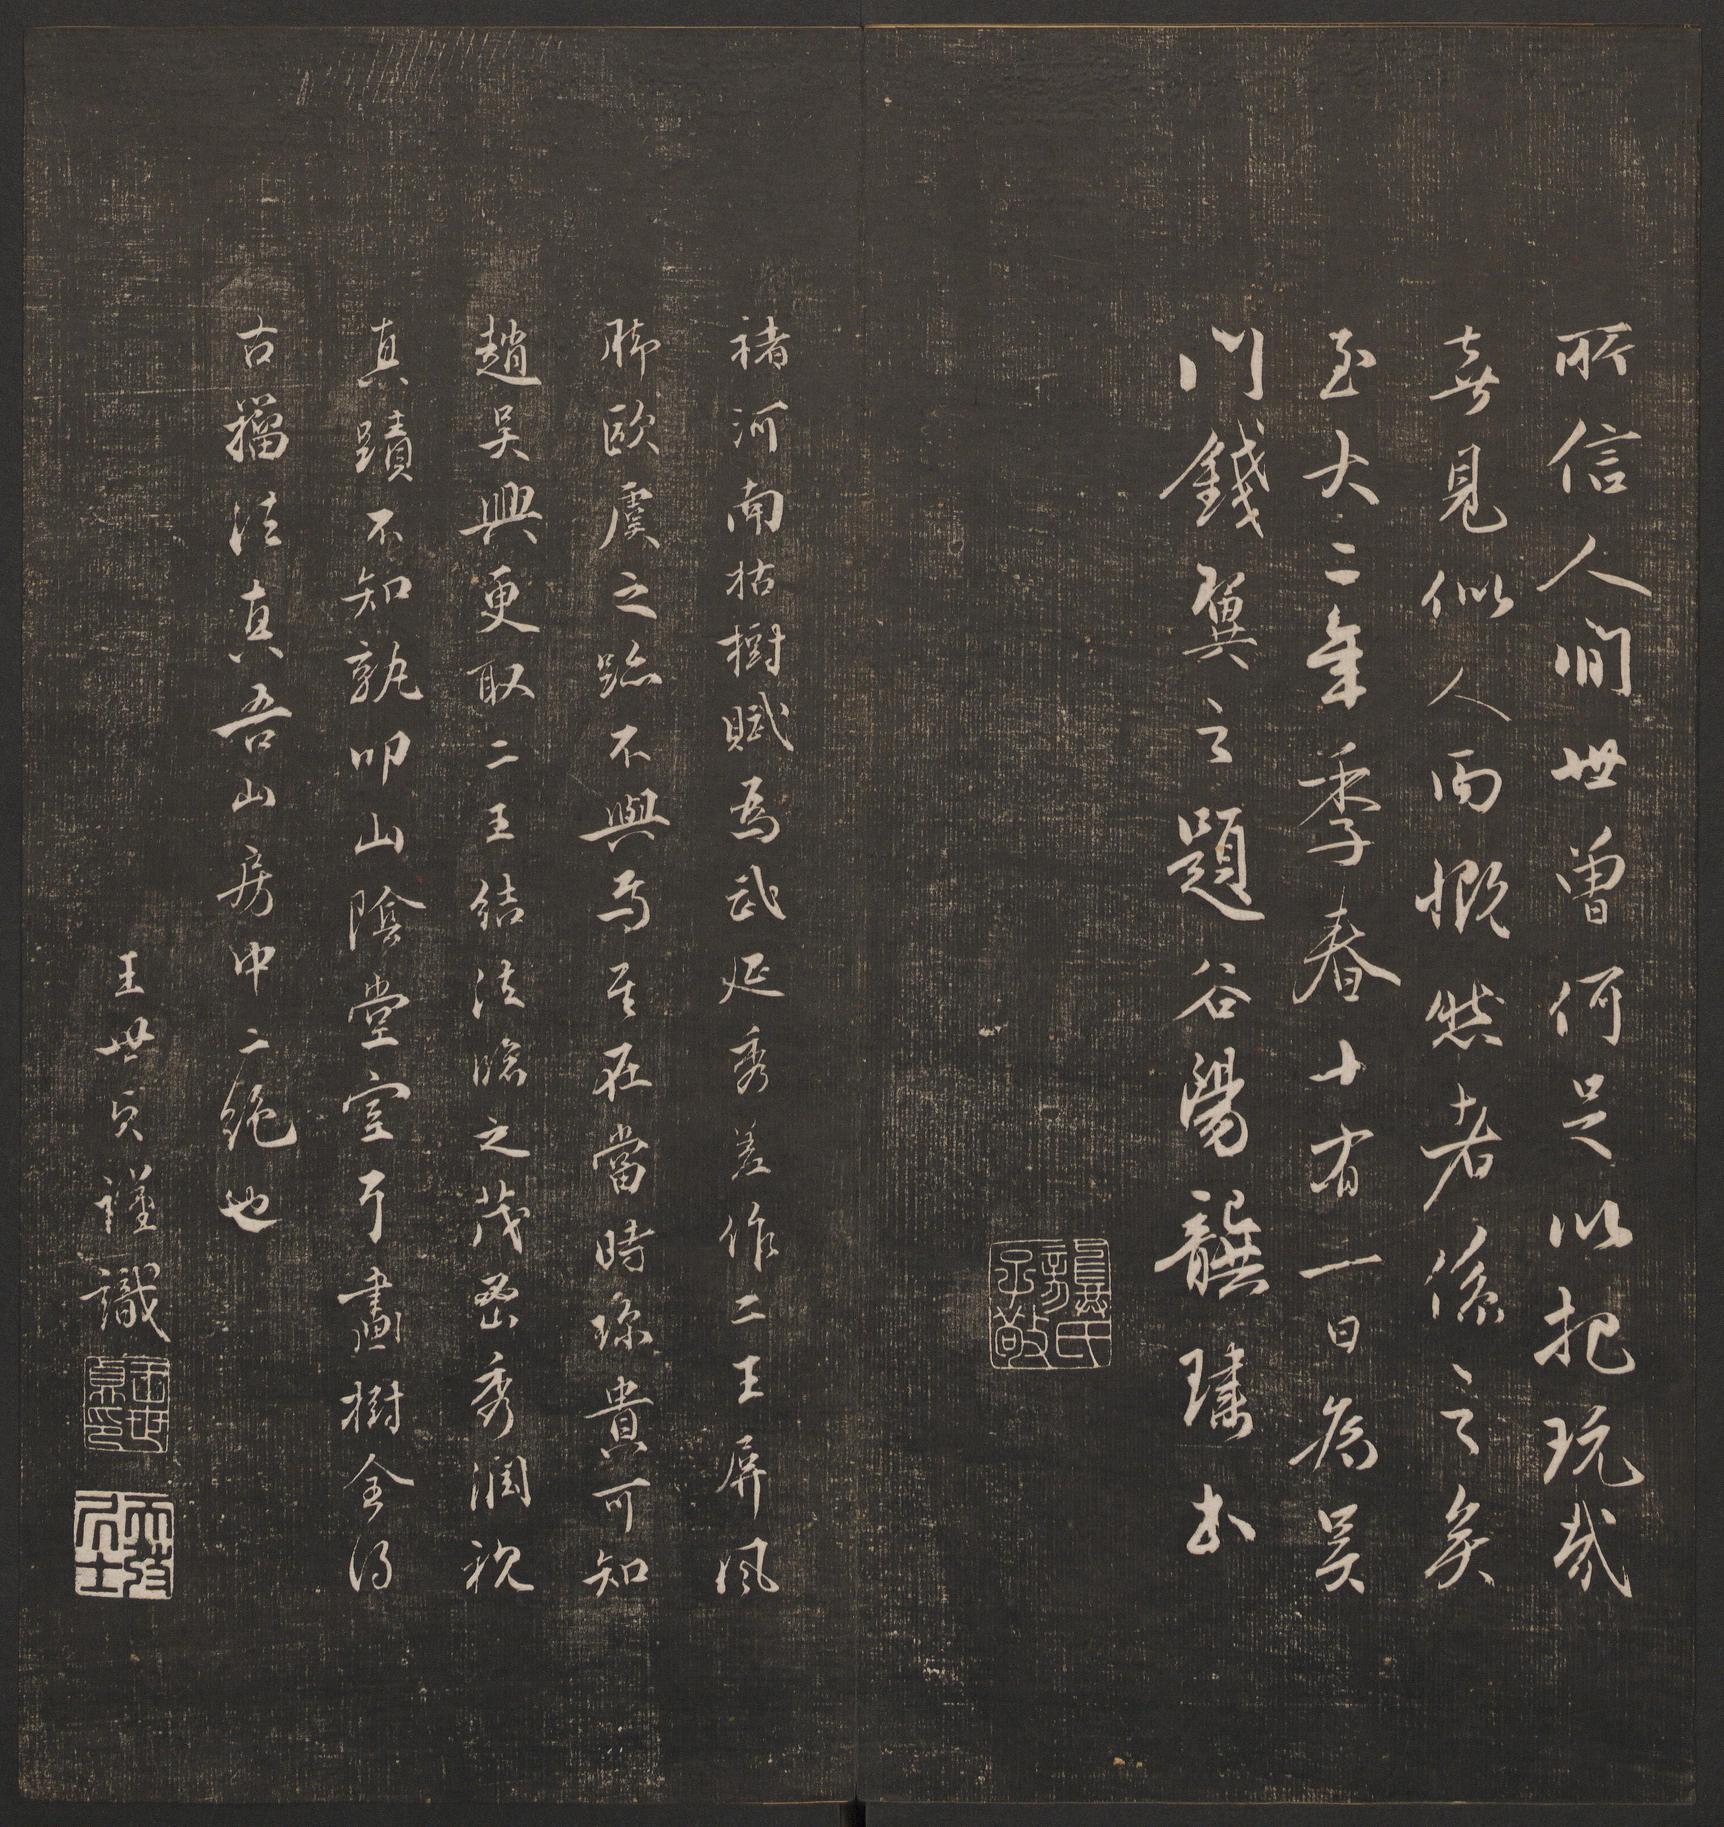 所信人間世曾何足以把玩哉
喜見似人而慨然者係之矣
至大二年季春十有二日為吳
門錢翼之題谷陽龔璛书
龔氏子敬
褚河南枯樹賦為武延秀差作二王屏風
腳歐虞之跡不與焉其在當時珍貴可知
趙吳興更取二王結法臨之茂密秀潤視
真蹟不知孰叩山陰堂室耳畫樹全得
古籀法真吾山房中二絕也
王世貞謹識
王世貞印